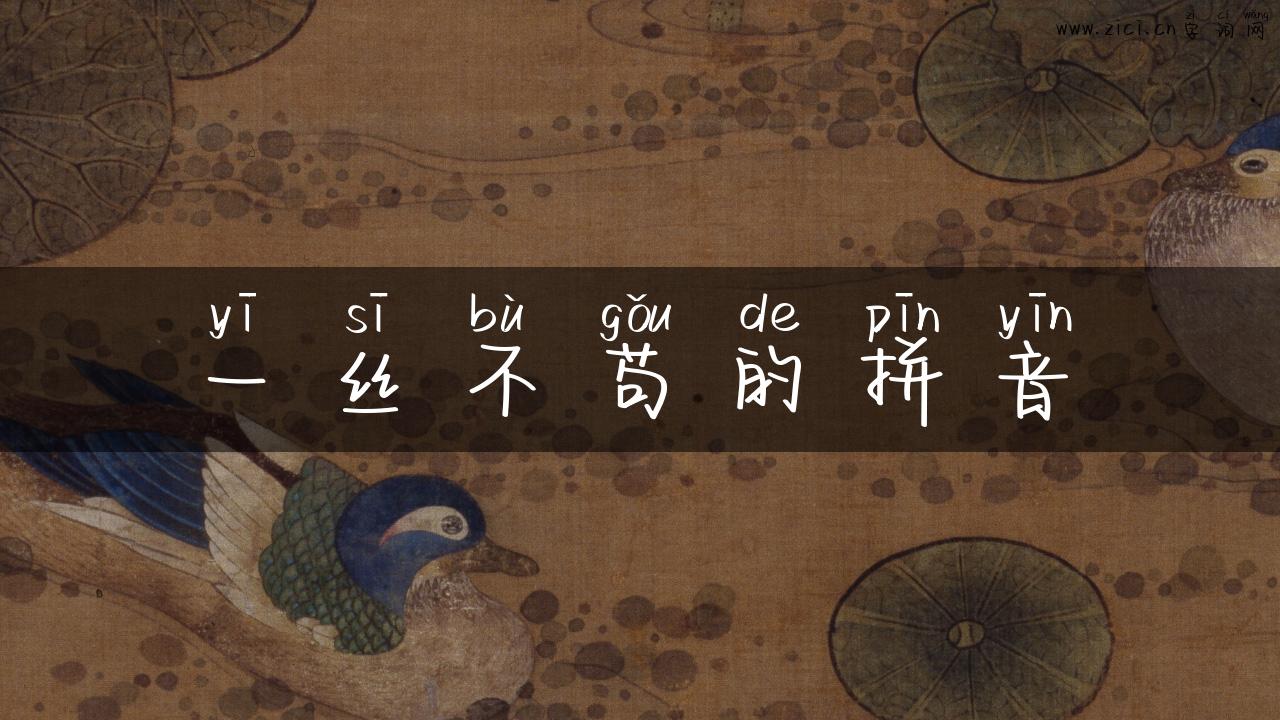 zì cí wǎng
www.zici.cn 字词网
yī sī bù gǒu de pīn yīn
一丝不苟的拼音